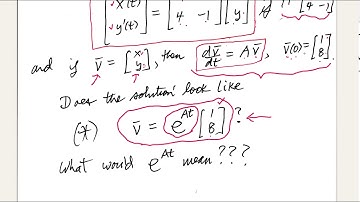 [x'(t) y'(t)] = [4 -1] [y] if [4 -1]
and if v̄ = [x y], then dv̄/dt = Av̄, v̄(0) = [1 8].
Does the solution look like
(*) v̄ = e^{At} [1 8] ?
What would e^{At} mean ???